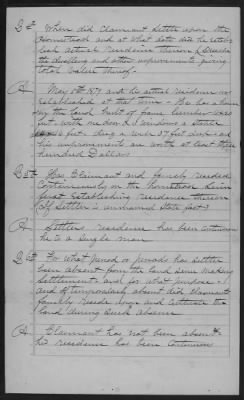 Q 4th When did claimant settle upon the
homestead and at what date did he establish
his actual residence thereon (Describe
the dwelling and other improvements giving
total value thereof.
A May 1879 and his actual residence was
established at that time. He has a house
on the land built of frame lumber
out with one door & windows a stable
feet dug a well 37 feet deep and
his improvements are worth at least three
hundred Dollars
Q 5th Has Claimant and family resided
Continuously on the homestead since
first Establishing residence thereon
(If Settler is unmarried State fact)
A Settlers residence has been continuous
he is a single man
Q 6th For what period or periods has settler
been absent from the land since making
settlement and for what purpose
and if temporarily absent did claimants
family reside upon and cultivate the
land during such absence
A Claimant has not been absent
his residence has been continuous